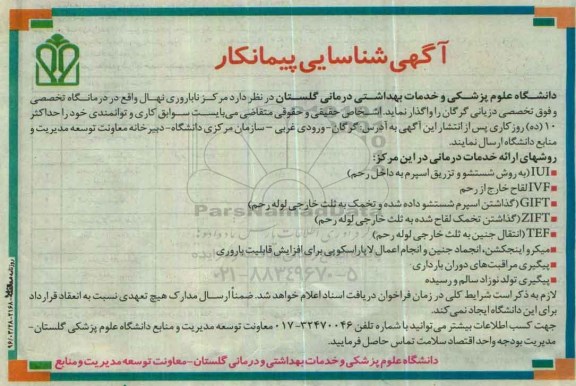 آگهی شناسایی پیمانکار
دانشگاه علوم پزشکی و خدمات بهداشتی درمانی گلستان در نظر دارد مرکز ناباروری نهال واقع در درمانگاه تخصصی
و فوق تخصصی دزیانی گرگان را واگذار نماید. اشخاص حقیقی و حقوقی متقاضی می‌بایست سوابق کاری و توانمندی خود را حداکثر
۱۰ (ده) روز کاری پس از انتشار این آگهی به آدرس: گرگان - ورودی غربی - سازمان مرکزی دانشگاه - دبیرخانه معاونت توسعه مدیریت و
منابع دانشگاه ارسال نمایند.
روشهای ارائه خدمات درمانی در این مرکز:
■ IUI (به روش شستشو و تزریق اسپرم به داخل رحم)
■ IVF لقاح خارج از رحم
■ GIFT (گذاشتن اسپرم شستشو داده شده و تخمک به ثلث خارجی لوله رحم)
■ ZIFT (گذاشتن تخمک لقاح شده به ثلث خارجی لوله رحم)
■ TEF (انتقال جنین به ثلث خارجی لوله رحم)
■ میکرو اینجکشن، انجماد جنین و انجام اعمال لاپاراسکوپی برای افزایش قابلیت باروری
■ پیگیری مراقبت‌های دوران بارداری
■ پیگیری تولد نوزاد سالم و رسیده
لازم به ذکر است شرایط کلی در زمان فراخوان دریافت اسناد اعلام خواهد شد. ضمناً ارسال مدارک هیچ تعهدی نسبت به انعقاد قرارداد
برای این دانشگاه ایجاد نمی‌کند.
جهت کسب اطلاعات بیشتر می‌توانید با شماره تلفن ۳۲۴۷۰۰۴۶-۰۱۷ معاونت توسعه مدیریت و منابع دانشگاه علوم پزشکی گلستان -
مدیریت بودجه واحد اقتصاد سلامت تماس حاصل فرمایید.
دانشگاه علوم پزشکی و خدمات بهداشتی و درمانی گلستان - معاونت توسعه مدیریت و منابع
ParsNamadData
۰۲۱-۸۸۳۴۹۶۷۰-۵